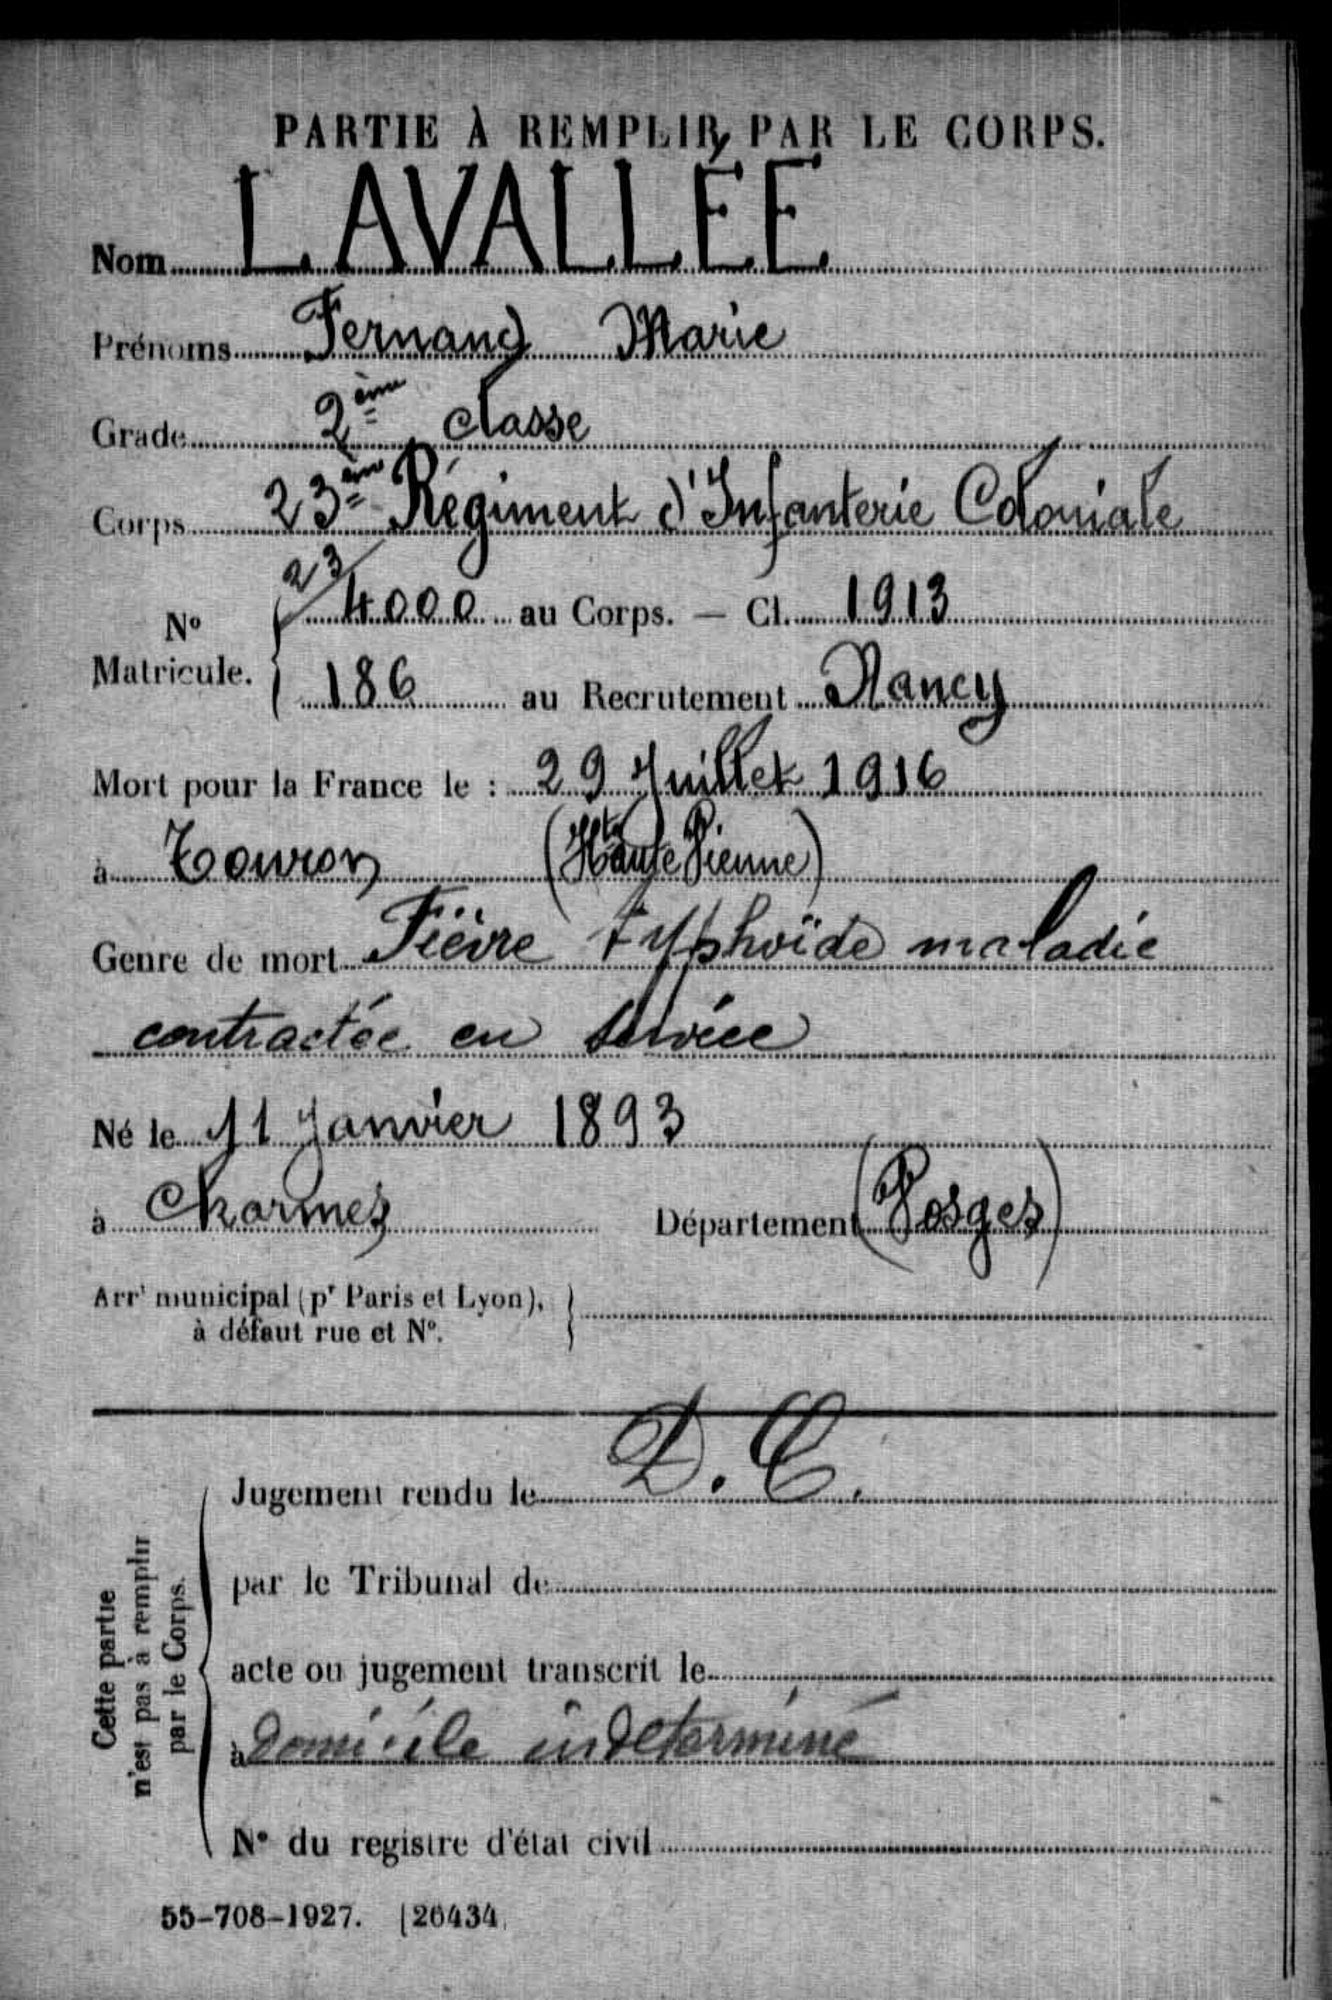 PARTIE À REMPLIR PAR LE CORPS.
Nom LAVALLÉE
Prénoms Fernand Marie
Grade 2ème classe
Corps 23ème Régiment d'Infanterie Coloniale
23/4000 au Corps. — Cl. 1913
N° Matricule.
186 au Recrutement Nancy
Mort pour la France le : 29 Juillet 1916
à Touron (Hte Vienne)
Genre de mort Fièvre typhoïde maladie
contractée en service
Né le 11 Janvier 1893
à Charmes Département (Vosges)
Arrt municipal (pr Paris et Lyon),
à défaut rue et N°.
D. C.
Jugement rendu le
par le Tribunal de
acte ou jugement transcrit le
à Domicile indéterminé
N° du registre d'état civil
Cette partie
n'est pas à remplir
par le Corps.
55-708-1927. [26434.